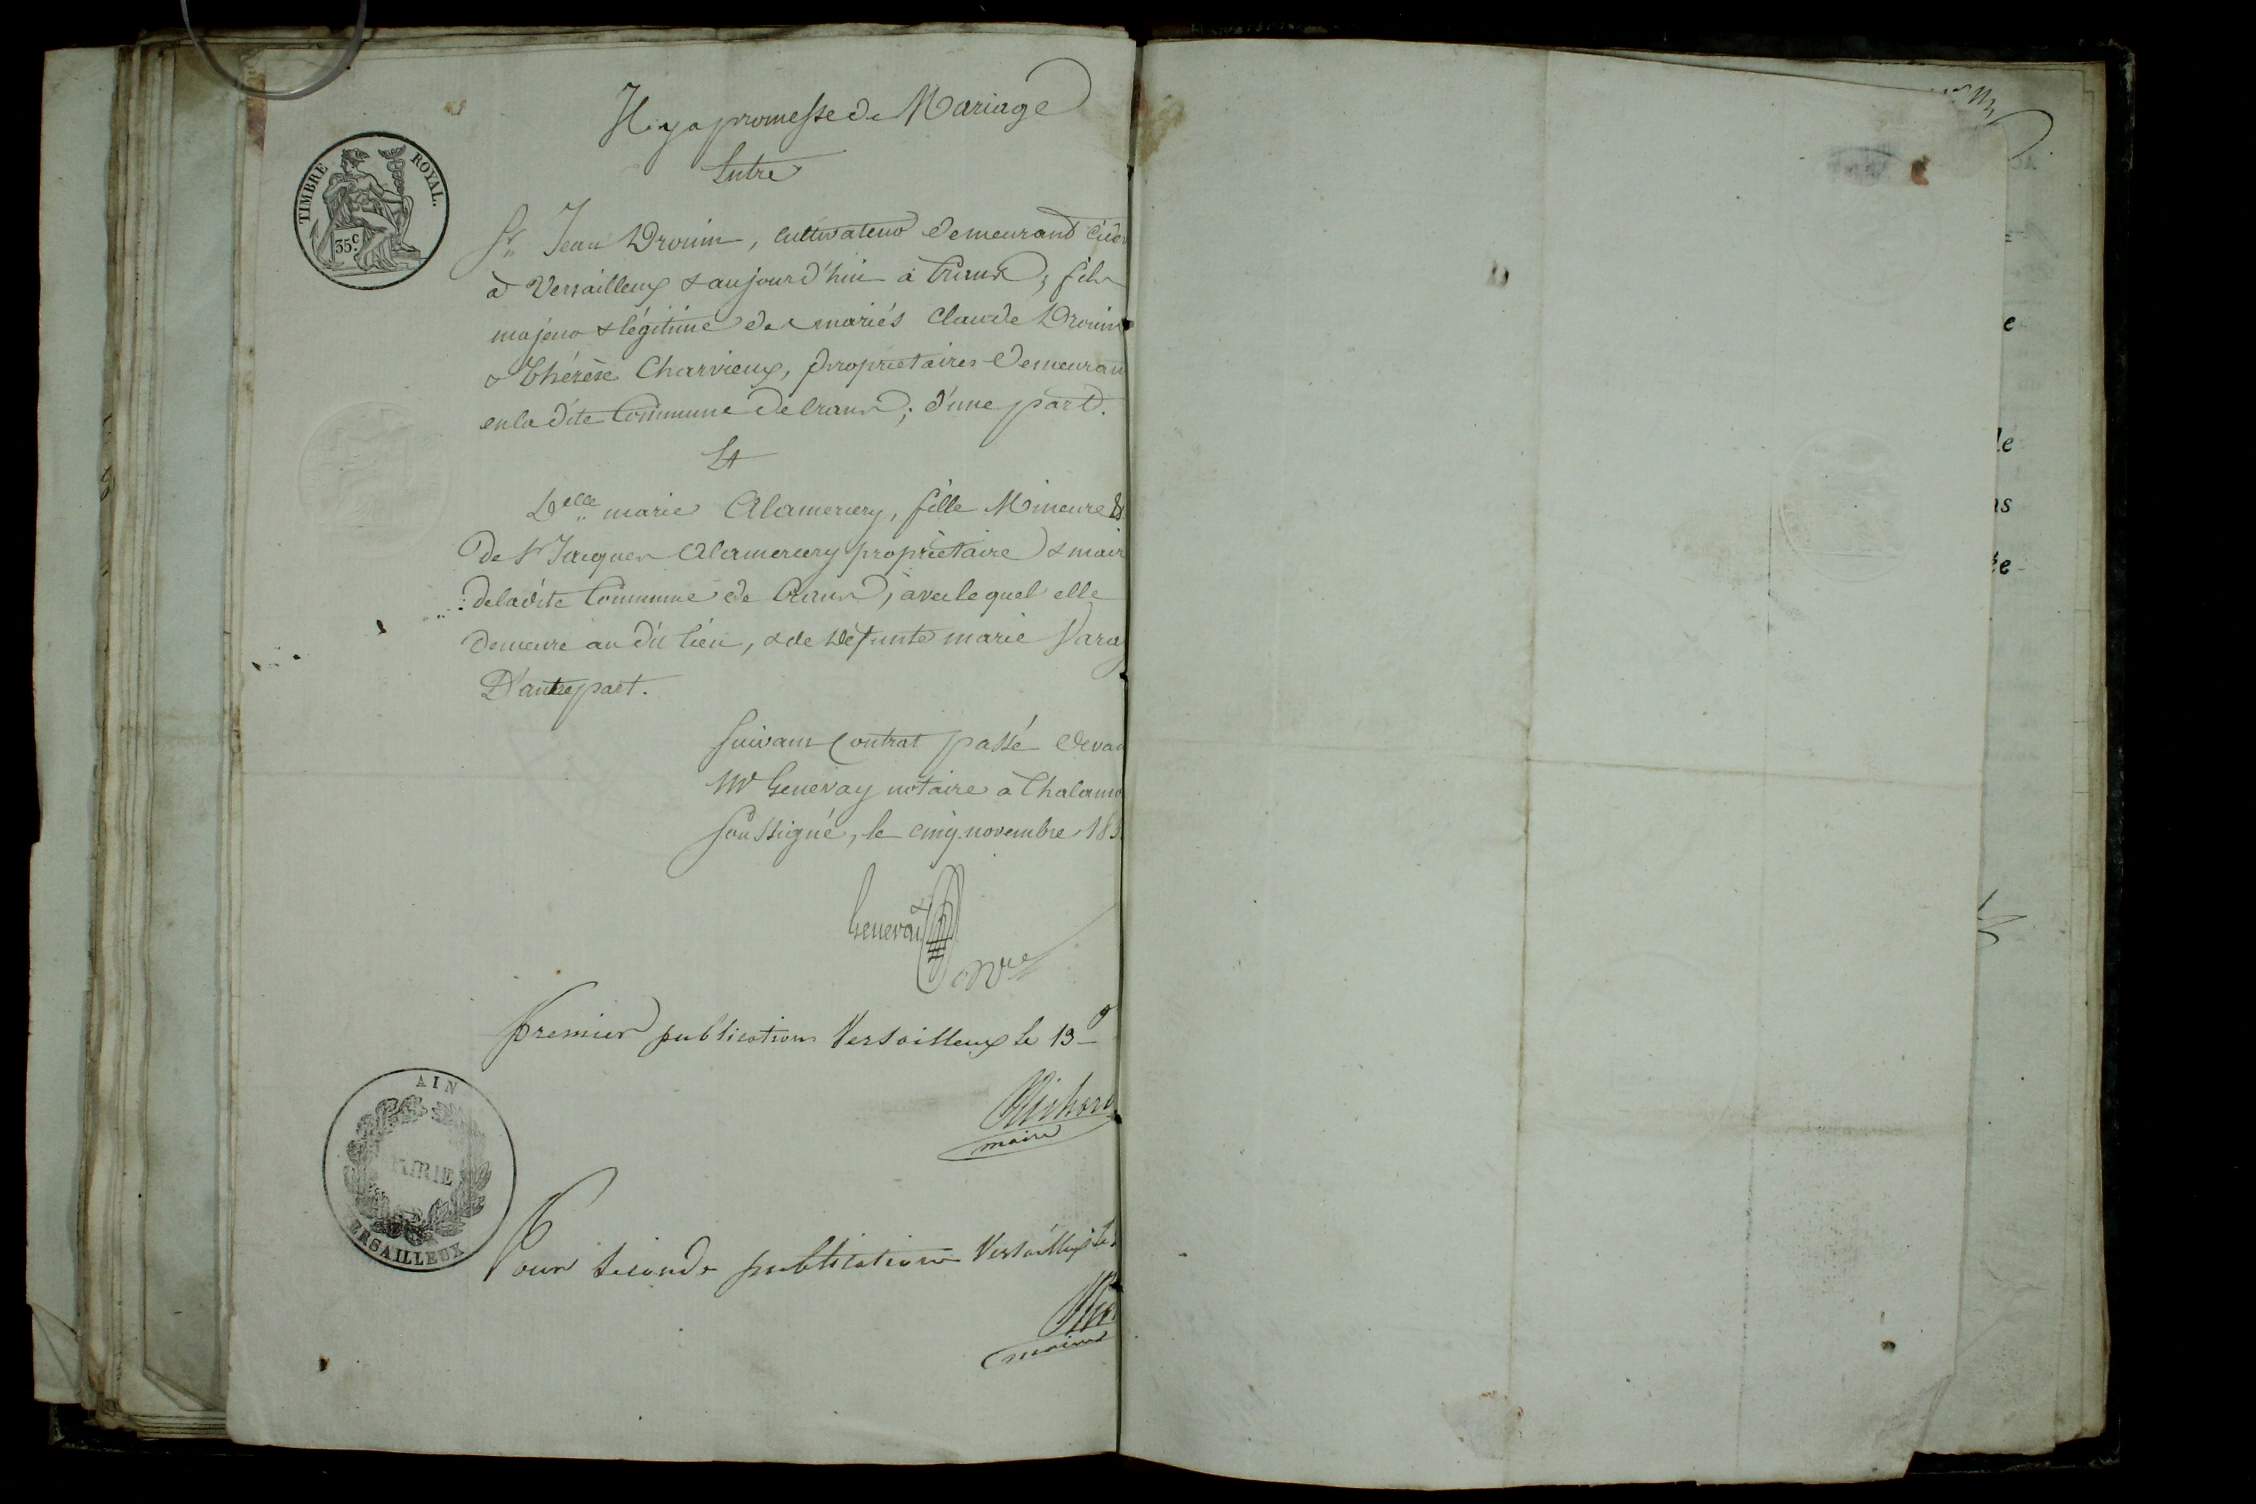 Il y a promesse de Mariage
Entre
TIMBRE ROYAL.
35 c.
Sr. Jean Drouin, cultivateur demeurant
à Versailleux & aujourd'hui à Crans, fils
majeur & légitime de mariés Claude Drouin
& Thérèse Charvieux, propriétaires demeuran
en la dite Commune de Crans; d'une part.
Et
Delle marie Alamercery, fille Mineure
de Sr Jacques Alamercery propriétaire & mair
de la dite Commune de Crans, avec lequel elle
demeure au dit lieu, & de Défunte marie
D'autre part.
Suivant Contrat passé deva
Me Genevay notaire à Chalamo
Soussigné, le cinq novembre 18
Genevay
Nre
premier publication Versailleux le 13
Michard
maire
AIN
AIRIE
ERSAILLEUX
Pour seconde publication Versailleux le
maire